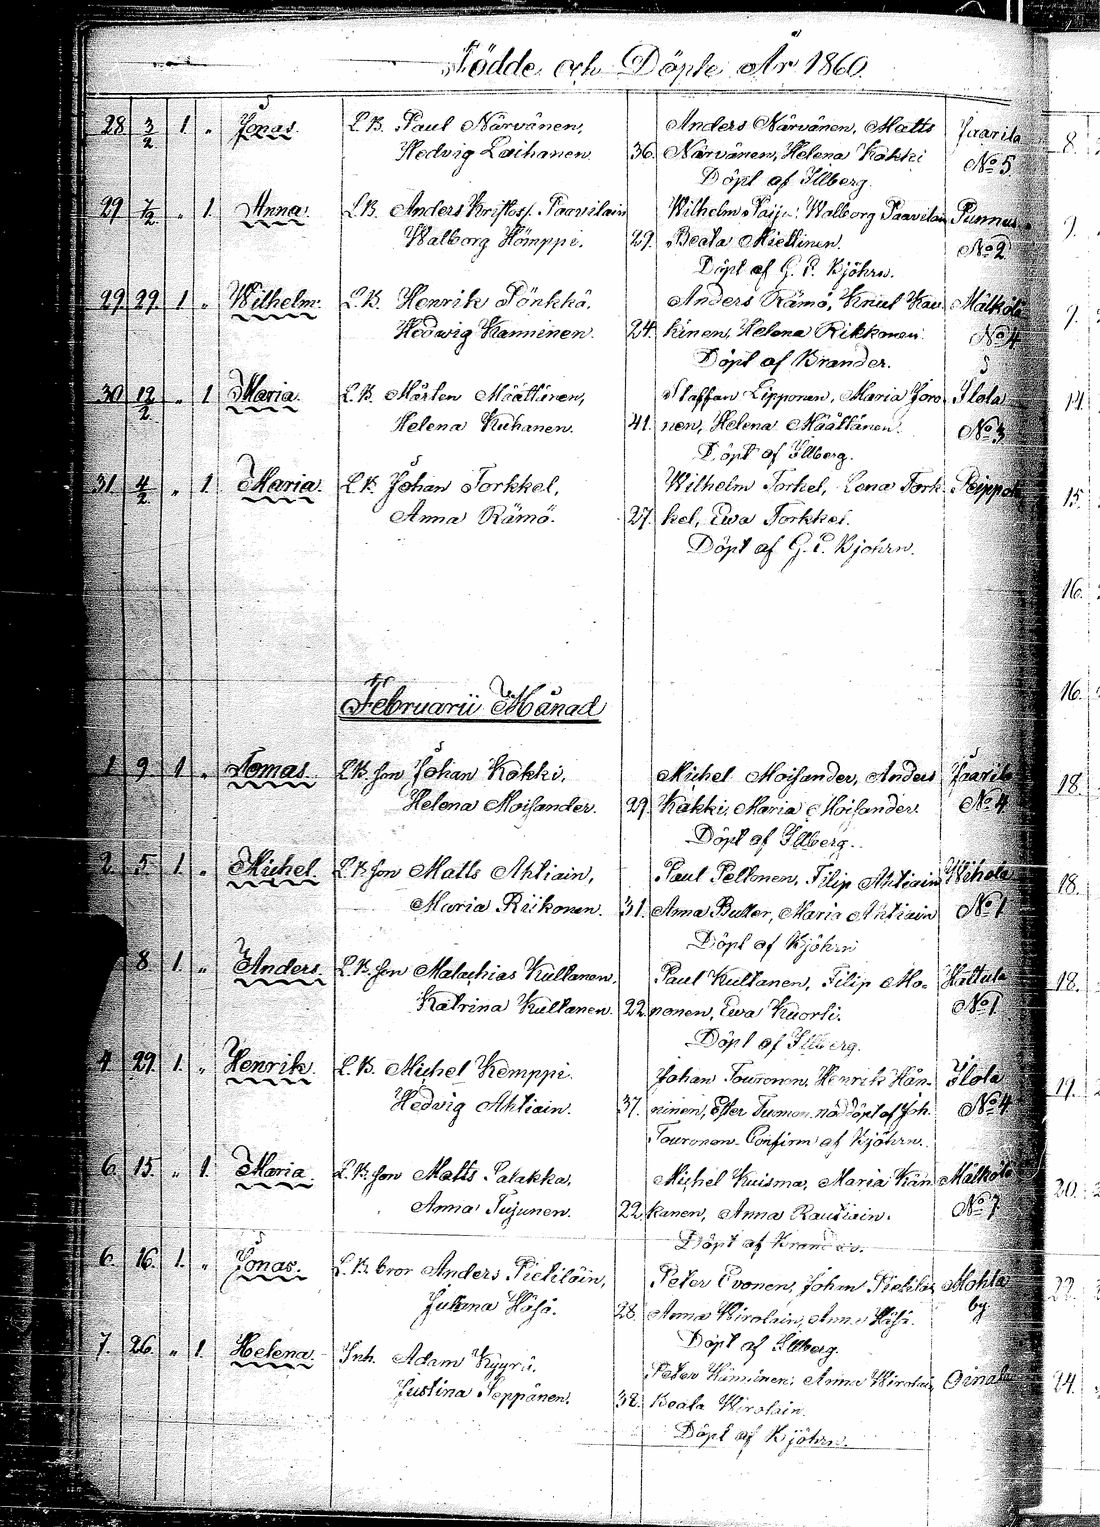 Födde och Döpte År 1860.
28 3/2 1 „ Jonas. L. B. Paul Närvänen, Anders Närvänen, Matts Jaarila
Hedvig Laihanen. 36. Närvänen, Helena Kokki No 5.
Döpt af Illberg.
29 7/2 „ 1. Anna. L. B. Anders Kristof. Paavilain Wilhelm Paija, Walborg Paavilain Punnus
Walborg Hömppi. 29. Beata Miettinen. No 2
Döpt af G. E. Bjöhrn.
29. 29. 1 „ Wilhelm. L. B. Henrik Pönkkä. Anders Rämö, Knut Kau- Mälkölä
Hedwig Kanninen. 24. hinen, Helena Rikkonen. No 4
Döpt af Brander.
30 12/2 „ 1 Maria. L. B. Mårten Määttänen, Staffan Lipponen, Maria Joro- Ilola
Helena Kuhanen. 41. nen, Helena Määttänen. No 3
Döpt af Illberg.
31. 4/2 „ 1. Maria. L. B. Johan Torkkel, Wilhelm Torkel, Lena Tork- Peippola
Anna Rämö. 27. kel, Ewa Torkkel.
Döpt af G. E. Bjöhrn.
Februarii Månad
1 9 1 „ Tomas. L. B. son Johan Kokki, Michel Moisander, Anders Jaarila
Helena Moisander. 29. Kokki, Maria Moisander. No 4
Döpt af Illberg.
2. 5. 1. „ Michel. L. B. son Matts Ahtiain, Paul Peltonen, Filip Ahtiain Wihola
Maria Riikonen. 31. Anna Butter, Maria Ahtiain No 1
Döpt af Bjöhrn
8. 1. „ Anders. L. B. son Malachias Kultanen. Paul Kultanen, Filip Mo- Hattula
Katrina Kultanen. 22. nonen, Ewa Kuorti. No 1
Döpt af Illberg.
4. 29. 1. „ Henrik. L. B. Michel Kemppi. Johan Touronen, Henrik Hän- Ilola
Hedvig Ahtiain. 37. ninen, Ester Tumon. nöddöpt af Joh. No 4
Touronen. Confirm af Bjöhrn.
6. 15. „ 1. Maria. L. B. son Matts Palakka, Michel Kuisma, Maria Kän- Mälkölä
Anna Tujunen. 22. känen, Anna Rautiain. No 7
Döpt af Brander.
6. 16. 1. „ Jonas. L. B. bror Anders Pietiläin, Peter Evonen, Johan Pietiläi Mohla
Juliana Häjä. 28. Anna Wirolain, Anna Häjä. by
Döpt af Illberg.
7. 26. „ 1. Helena. Inh. Adam Kyyrö. Peter Kinnunen, Anna Wirolain, Oinala
Justina Seppänen. 38. Beata Wirolain.
Döpt af Bjöhrn.
8.
9.
9.
14.
15.
16.
16.
18.
18.
18.
19.
20.
22.
24.